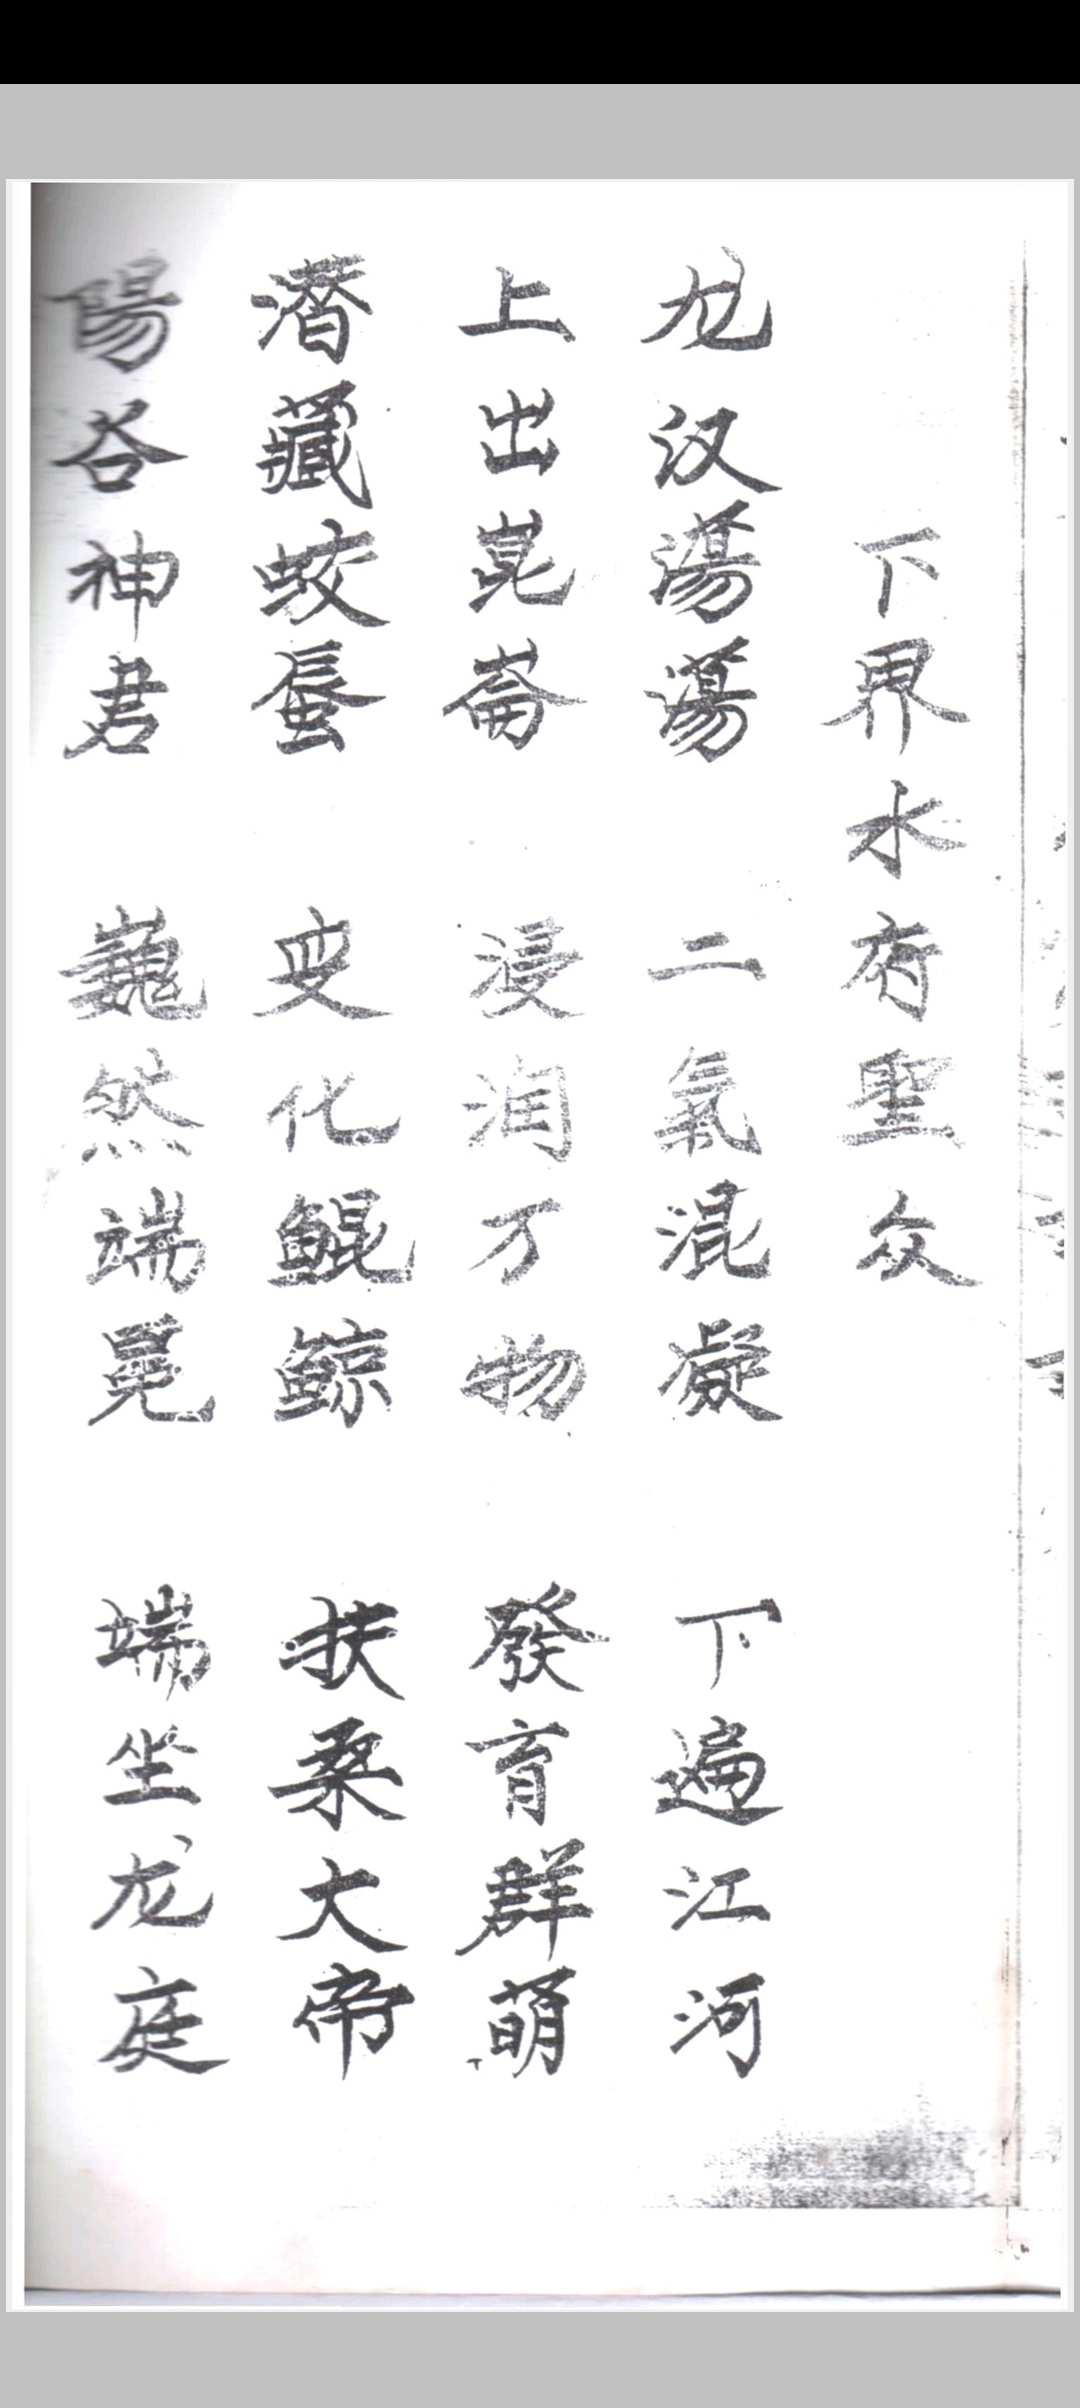 下界水府聖众
龙汉蕩蕩 二氣混凝 下遍江河
上出崑崙 浸润万物 發育群萌
潛藏蛟蜃 变化鯤鯨 扶桑大帝
陽谷神君 巍然端冕 端坐龙庭